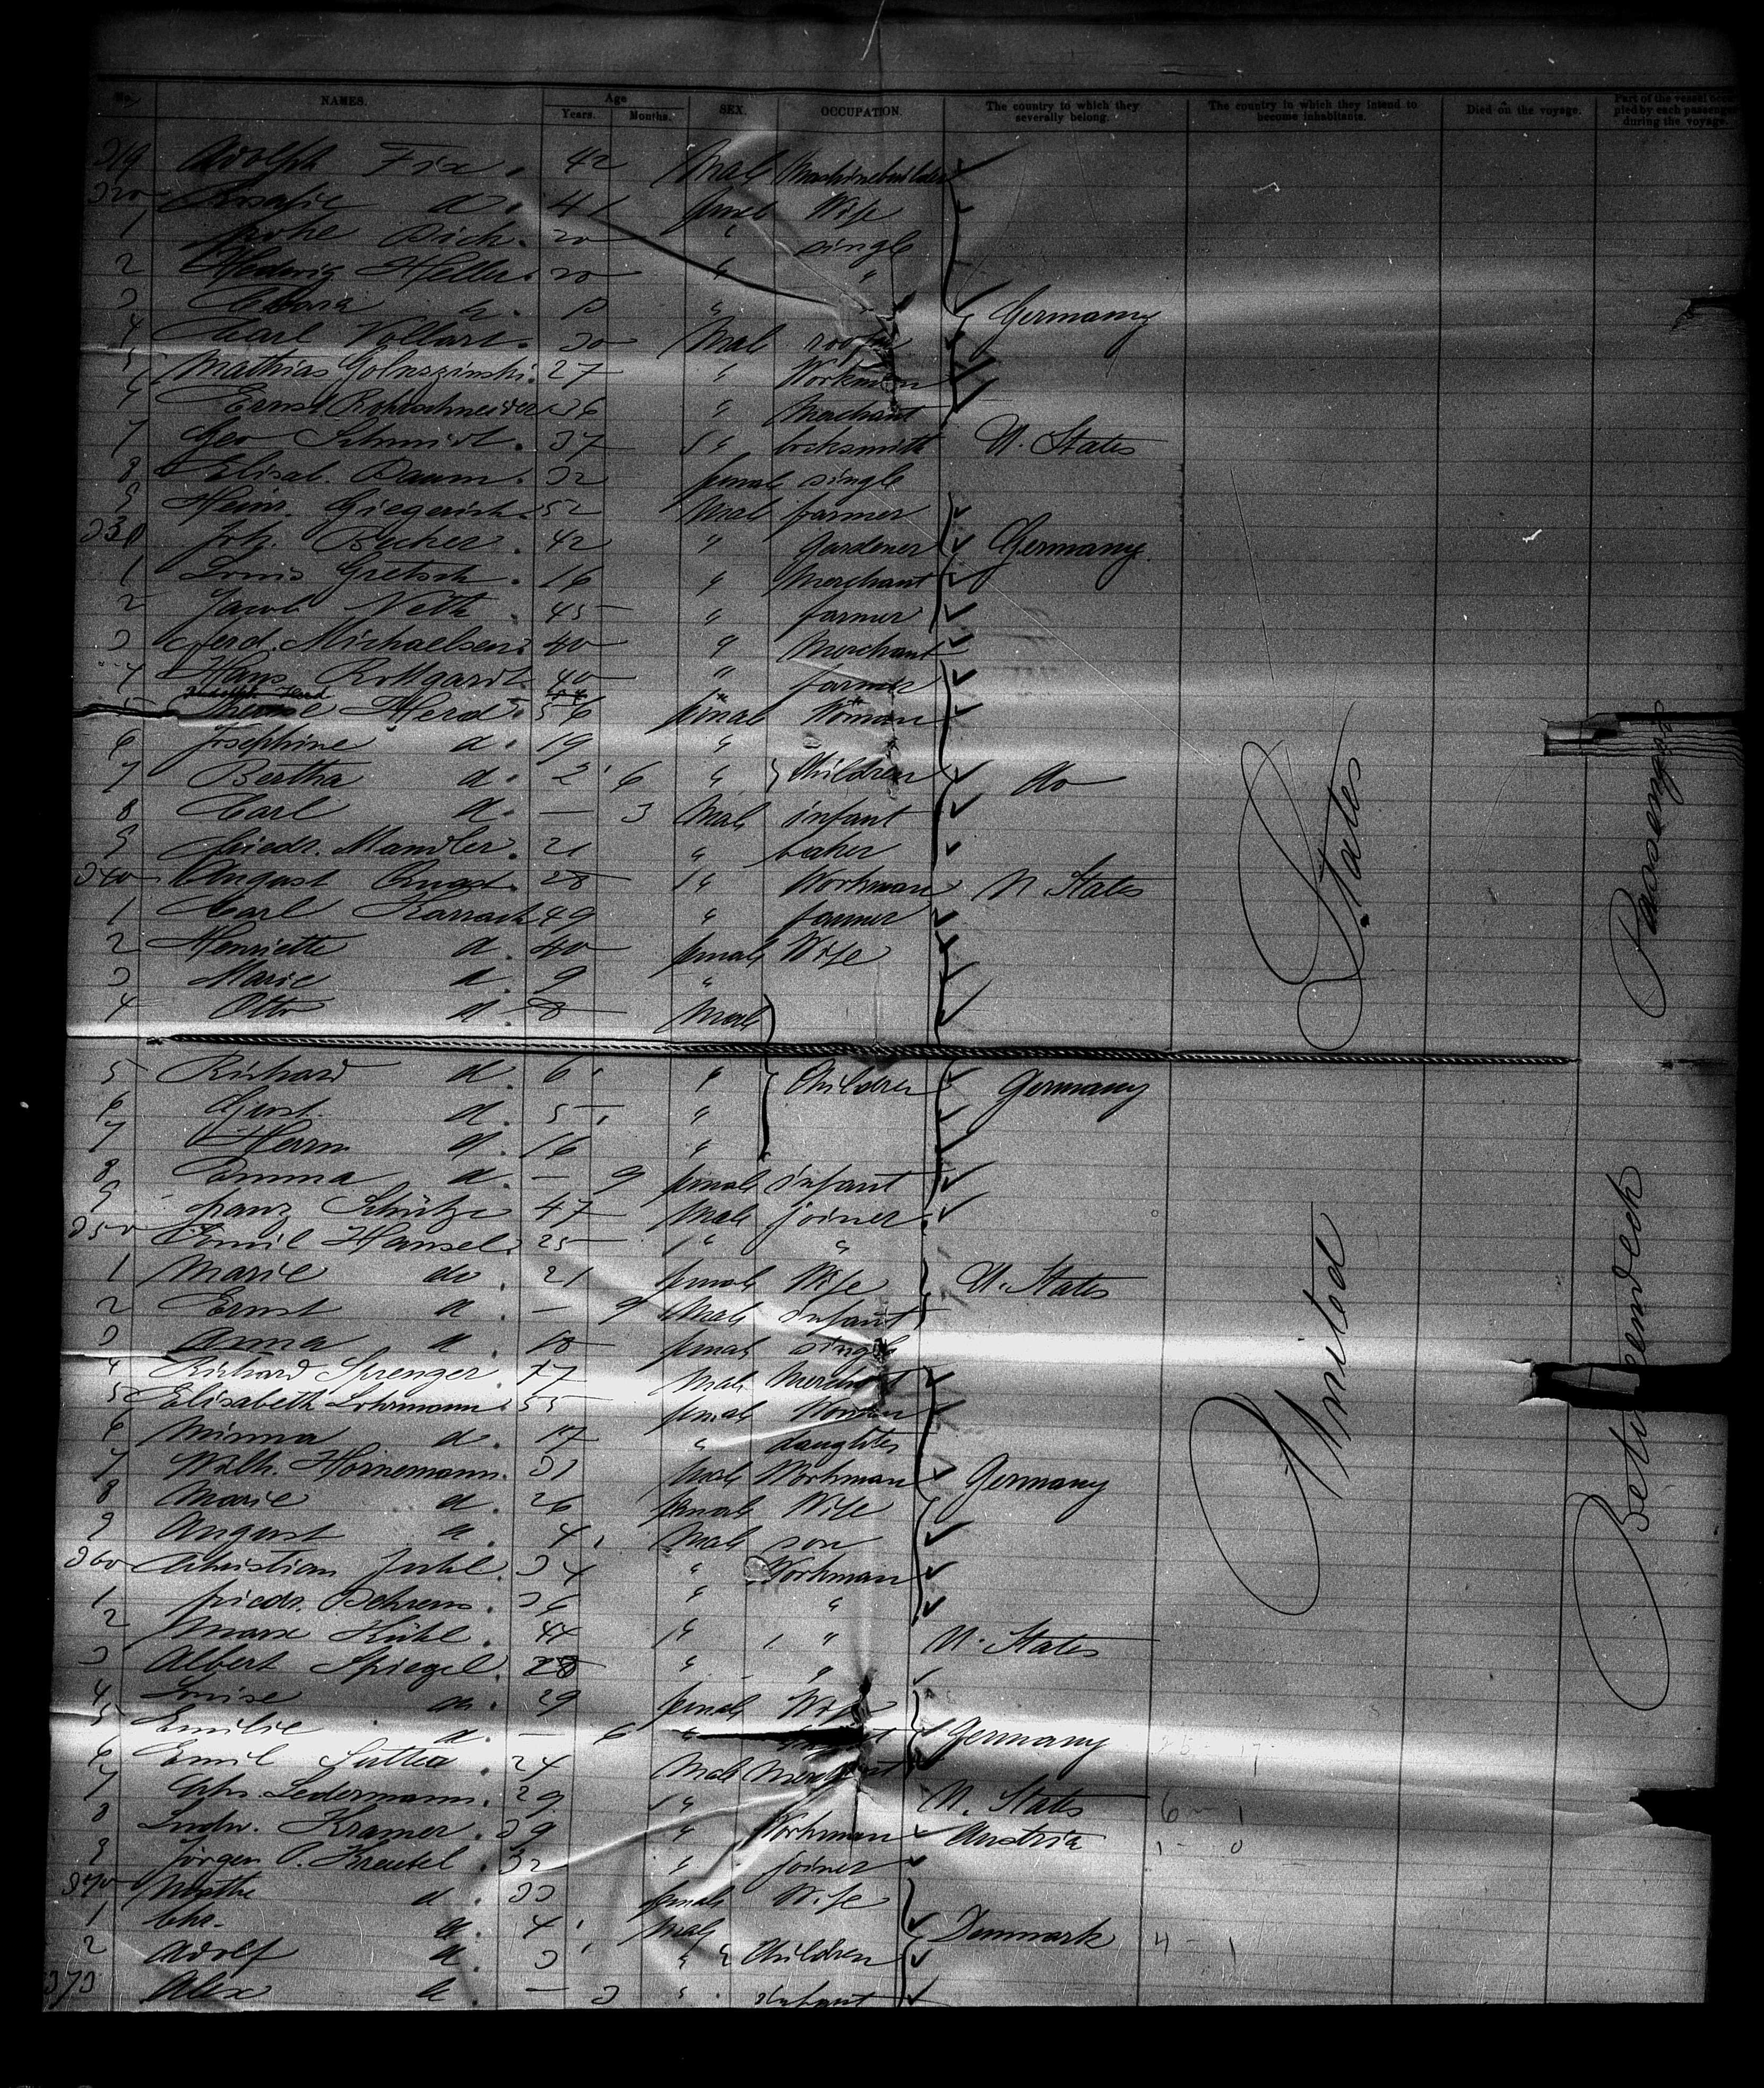 No. NAMES. Age Years. Months. SEX. OCCUPATION. The country to which they severally belong. The country in which they intend to become inhabitants. Died on the voyage. Part of the vessel occupied by each passenger during the voyage.
319 Adolph Fix. 42 Male Machinebuilder
320 Rosalie d. 41 femal Wife
1 Rich. 20 " single
2 Hedwig Heller. 20 " "
3 Clara d. "
4 Carl Vollart. 30 Male Germany
5 Mathias Golnszinski. 27 " Workman
6 Ernst Rohrschneider 36 " Merchant
7 Geo Schmidt. 37 " locksmith U. States
8 Elisab. Daum. 32 femal single
9 Heinr. Giegerich. 52 Male farmer
330 Joh. Becker. 42 " Gardener Germany.
1 Louis Gretsch. 16 " Merchant
2 Jacob Neth. 45 " farmer
3 Ferd. Michaelsen. 40 " Merchant
4 Hans Rottgardt. 40 " farmer
5 Herd. 56 femal Woman
6 Josephine d. 19 "
7 Bertha d. 2 6 " Children do
8 Carl d. — 3 Male infant
9 Friedr. Mandler. 21 " baker
340 August 28 " Workman U States
1 Carl Karrasch 49 " farmer
2 Henriette d. 40 femal Wife
3 Marie d. 9 "
4 Otto d. 8 Male
5 Richard d. 6 " Children Germany
6 Gust. d. 5 "
7 Herm d. 16 "
8 Emma d. — 9 femal infant
9 Franz Schütze 47 Male joiner
350 Emil Hansel. 25 " "
1 Marie do. 21 femal Wife U. States
2 Ernst d. — 9 Male infant
3 Anna d. 18 femal single
4 Richard Sprenger 77 Male Merchant
5 Elisabeth Lohrmann. 55 femal Woman
6 Minna d. 17 " daughter
7 Wilh. Hörnemann. 31 Male Workman Germany
8 Marie d. 26 femal Wife
9 August d. 4 Male son
360 Christian 34 " Workman
1 Friedr. Behrens. 36 " "
2 Marx Kühl. 44 " " U. States
3 Albert Spiegel. 28 " "
4 Louise do. 29 femal Wife
5 Emilie d. — 6 " Germany
6 Emil 24 Male Merchant
7 Ledermann. 29 " U. States 6 - 1
8 Ludw. Kramer. 39 " Workman Austria 1 - 0
9 Jörgen P. 32 " joiner
370 d. 33 femal Wife
1 Chr. d. 4 Male Denmark 4 - 1
2 Adolf d. 3 " Children
373 Alex d. — 3 " infant
United States
Betweendeck Passengers